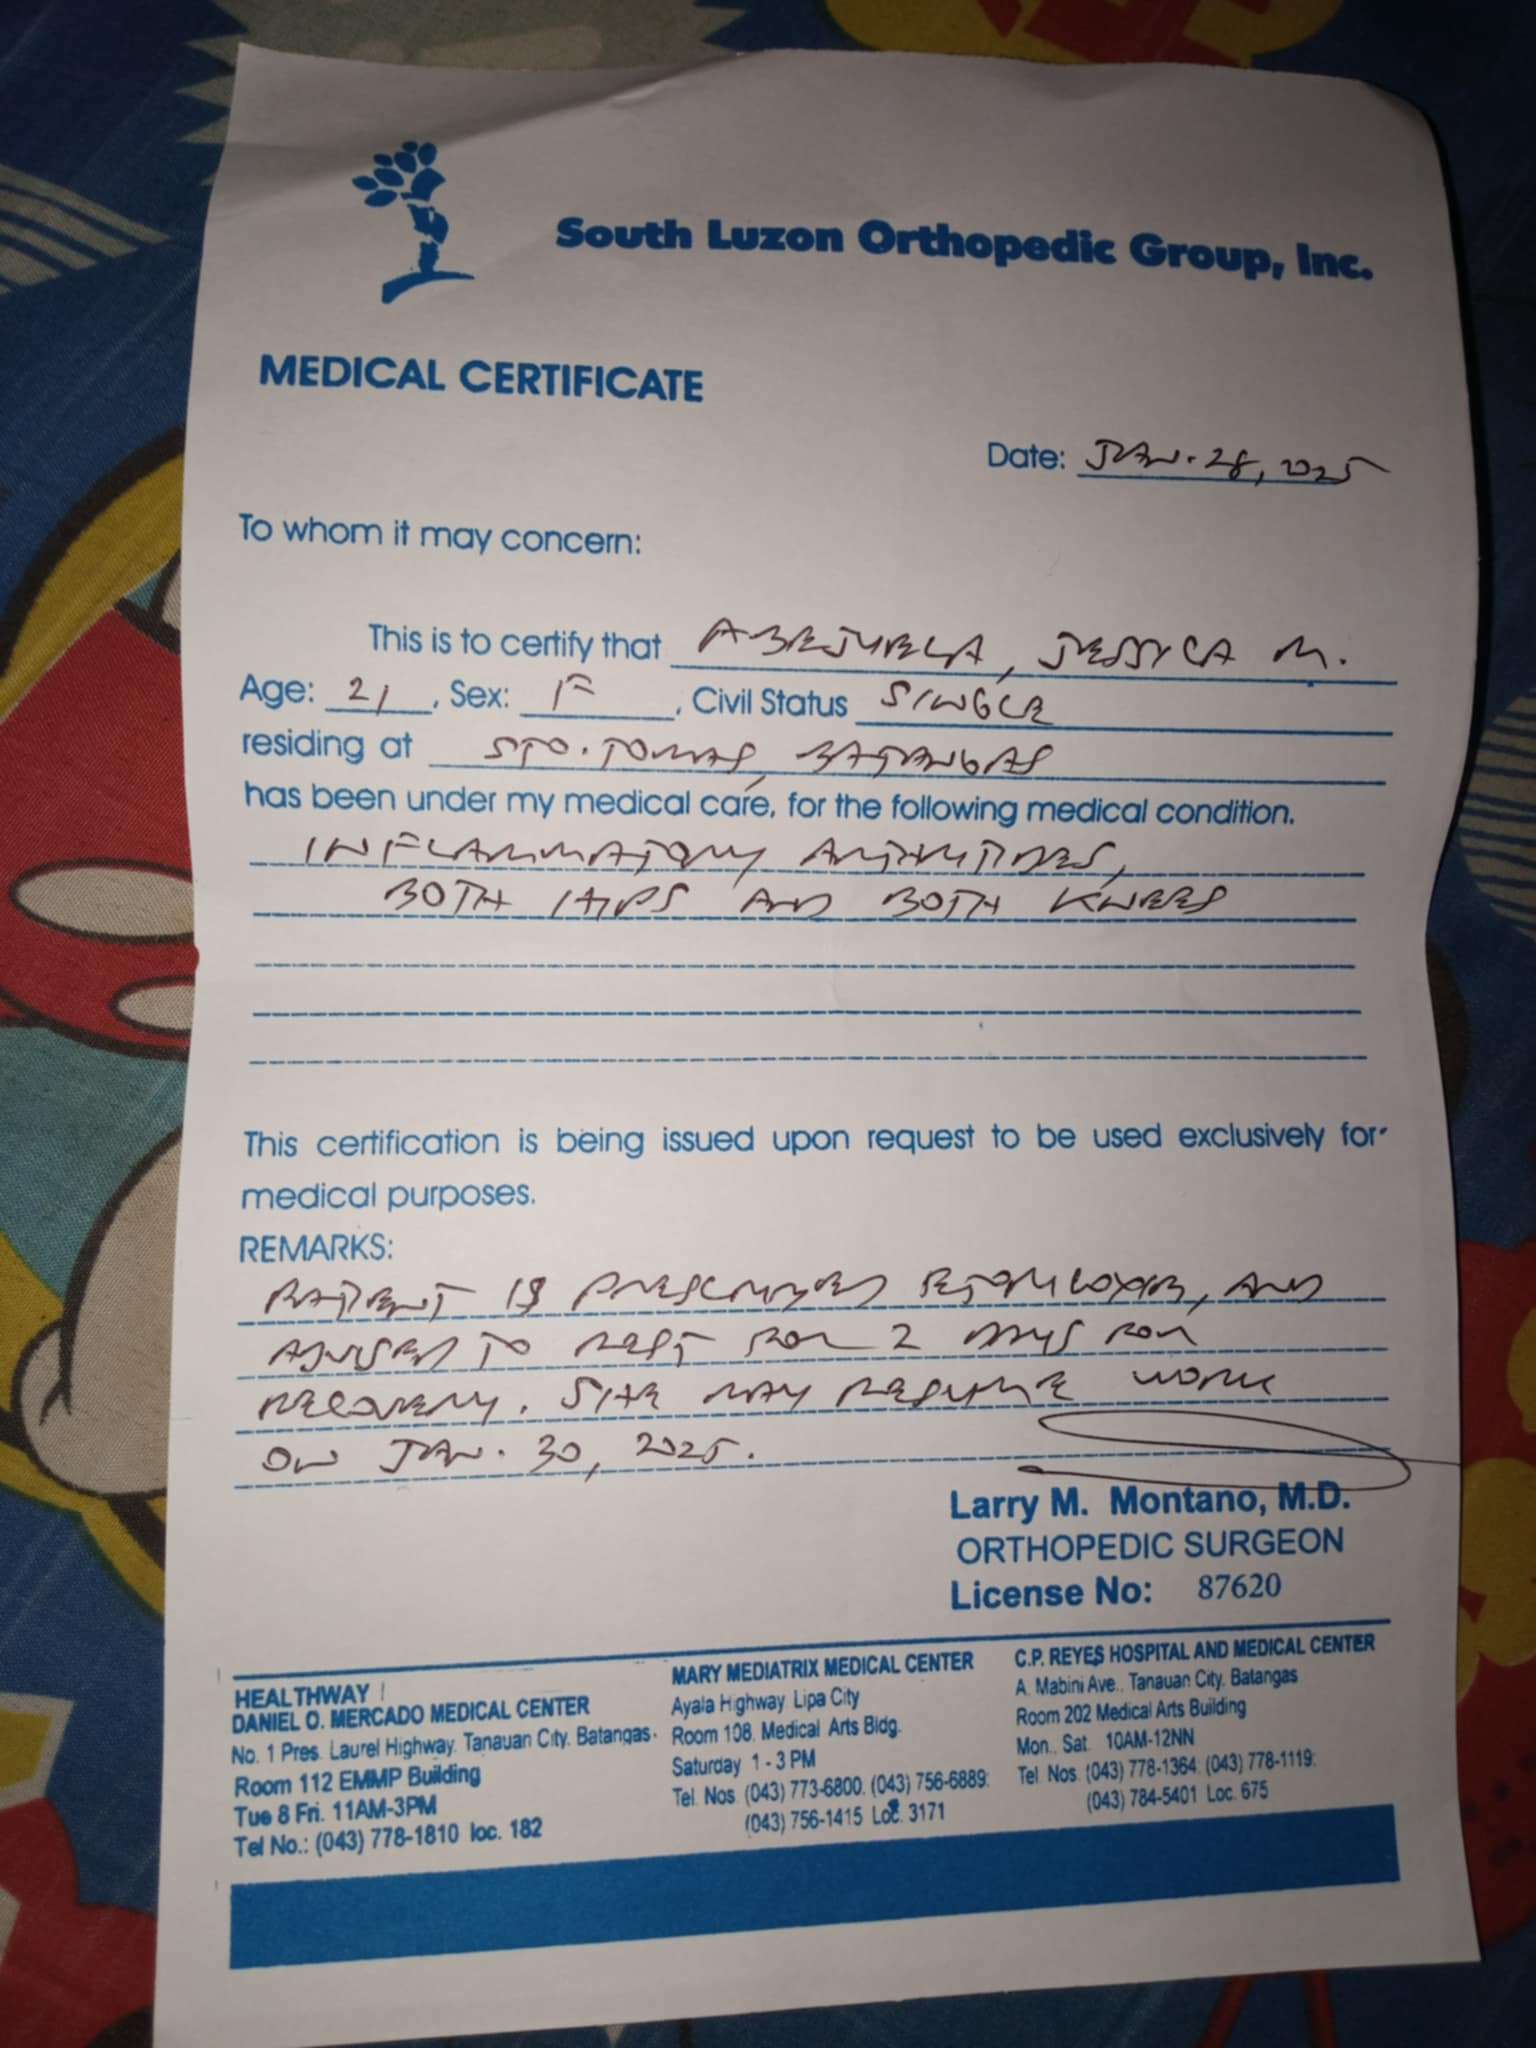 South Luzon Orthopedic Group, Inc.
MEDICAL CERTIFICATE
Date: JAN. 28, 2025
To whom it may concern:
This is to certify that ABEJUELA, JESSICA M.
Age: 21, Sex: F, Civil Status SINGLE
residing at STO. TOMAS, BATANGAS
has been under my medical care, for the following medical condition.
INFLAMMATORY ARTHRITIDES,
BOTH HIPS AND BOTH KNEES
This certification is being issued upon request to be used exclusively for
medical purposes.
REMARKS:
PATIENT IS PRESCRIBED ETORICOXIB, AND
ADVISED TO REST FOR 2 DAYS FOR
RECOVERY. SHE MAY RESUME WORK
ON JAN. 30, 2025.
Larry M. Montano, M.D.
ORTHOPEDIC SURGEON
License No: 87620
HEALTHWAY
DANIEL O. MERCADO MEDICAL CENTER
No. 1 Pres. Laurel Highway. Tanauan City. Batangas.
Room 112 EMMP Building
Tue 8 Fri. 11AM-3PM
Tel No.: (043) 778-1810 loc. 182
MARY MEDIATRIX MEDICAL CENTER
Ayala Highway Lipa City
Room 108. Medical Arts Bldg.
Saturday 1 - 3 PM
Tel. Nos. (043) 773-6800. (043) 756-6889:
(043) 756-1415 Loc. 3171
C.P. REYES HOSPITAL AND MEDICAL CENTER
A. Mabini Ave., Tanauan City. Batangas
Room 202 Medical Arts Building
Mon., Sat. 10AM-12NN
Tel. Nos. (043) 778-1364: (043) 778-1119:
(043) 784-5401 Loc. 675